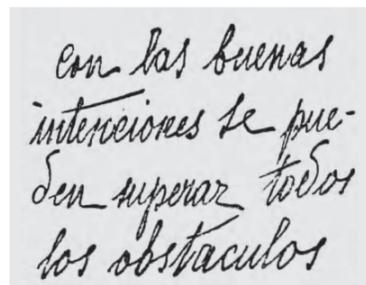 con las buenas
intenciones se pue-
den superar todos
los obstaculos